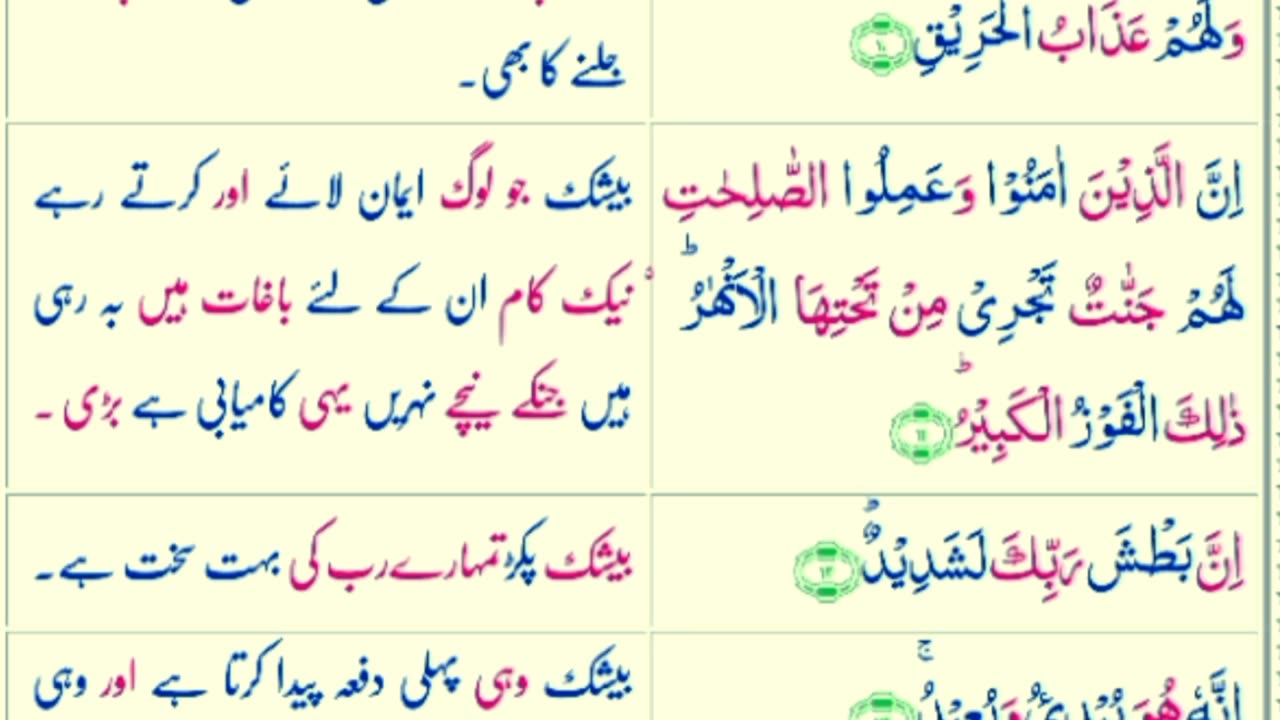 وَلَهُمْ عَذَابُ الْحَرِيْقِ ۱۰
جلنے کا بھی۔
اِنَّ الَّذِيْنَ اٰمَنُوْا وَعَمِلُوا الصّٰلِحٰتِ
لَهُمْ جَنّٰتٌ تَجْرِىْ مِنْ تَحْتِهَا الْاَنْهٰرُ ؕ
ذٰلِكَ الْفَوْزُ الْكَبِيْرُ ؕ ۱۱
بیشک جو لوگ ایمان لائے اور کرتے رہے
نیک کام ان کے لئے باغات ہیں بہ رہی
ہیں جنکے نیچے نہریں یہی کامیابی ہے بڑی ۔
اِنَّ بَطْشَ رَبِّكَ لَشَدِيْدٌ ؕ ۱۲
بیشک پکڑ تمہارے رب کی بہت سخت ہے۔
اِنَّهٗ هُوَ يُبْدِئُ وَيُعِيْدُ ۚ
بیشک وہی پہلی دفعہ پیدا کرتا ہے اور وہی